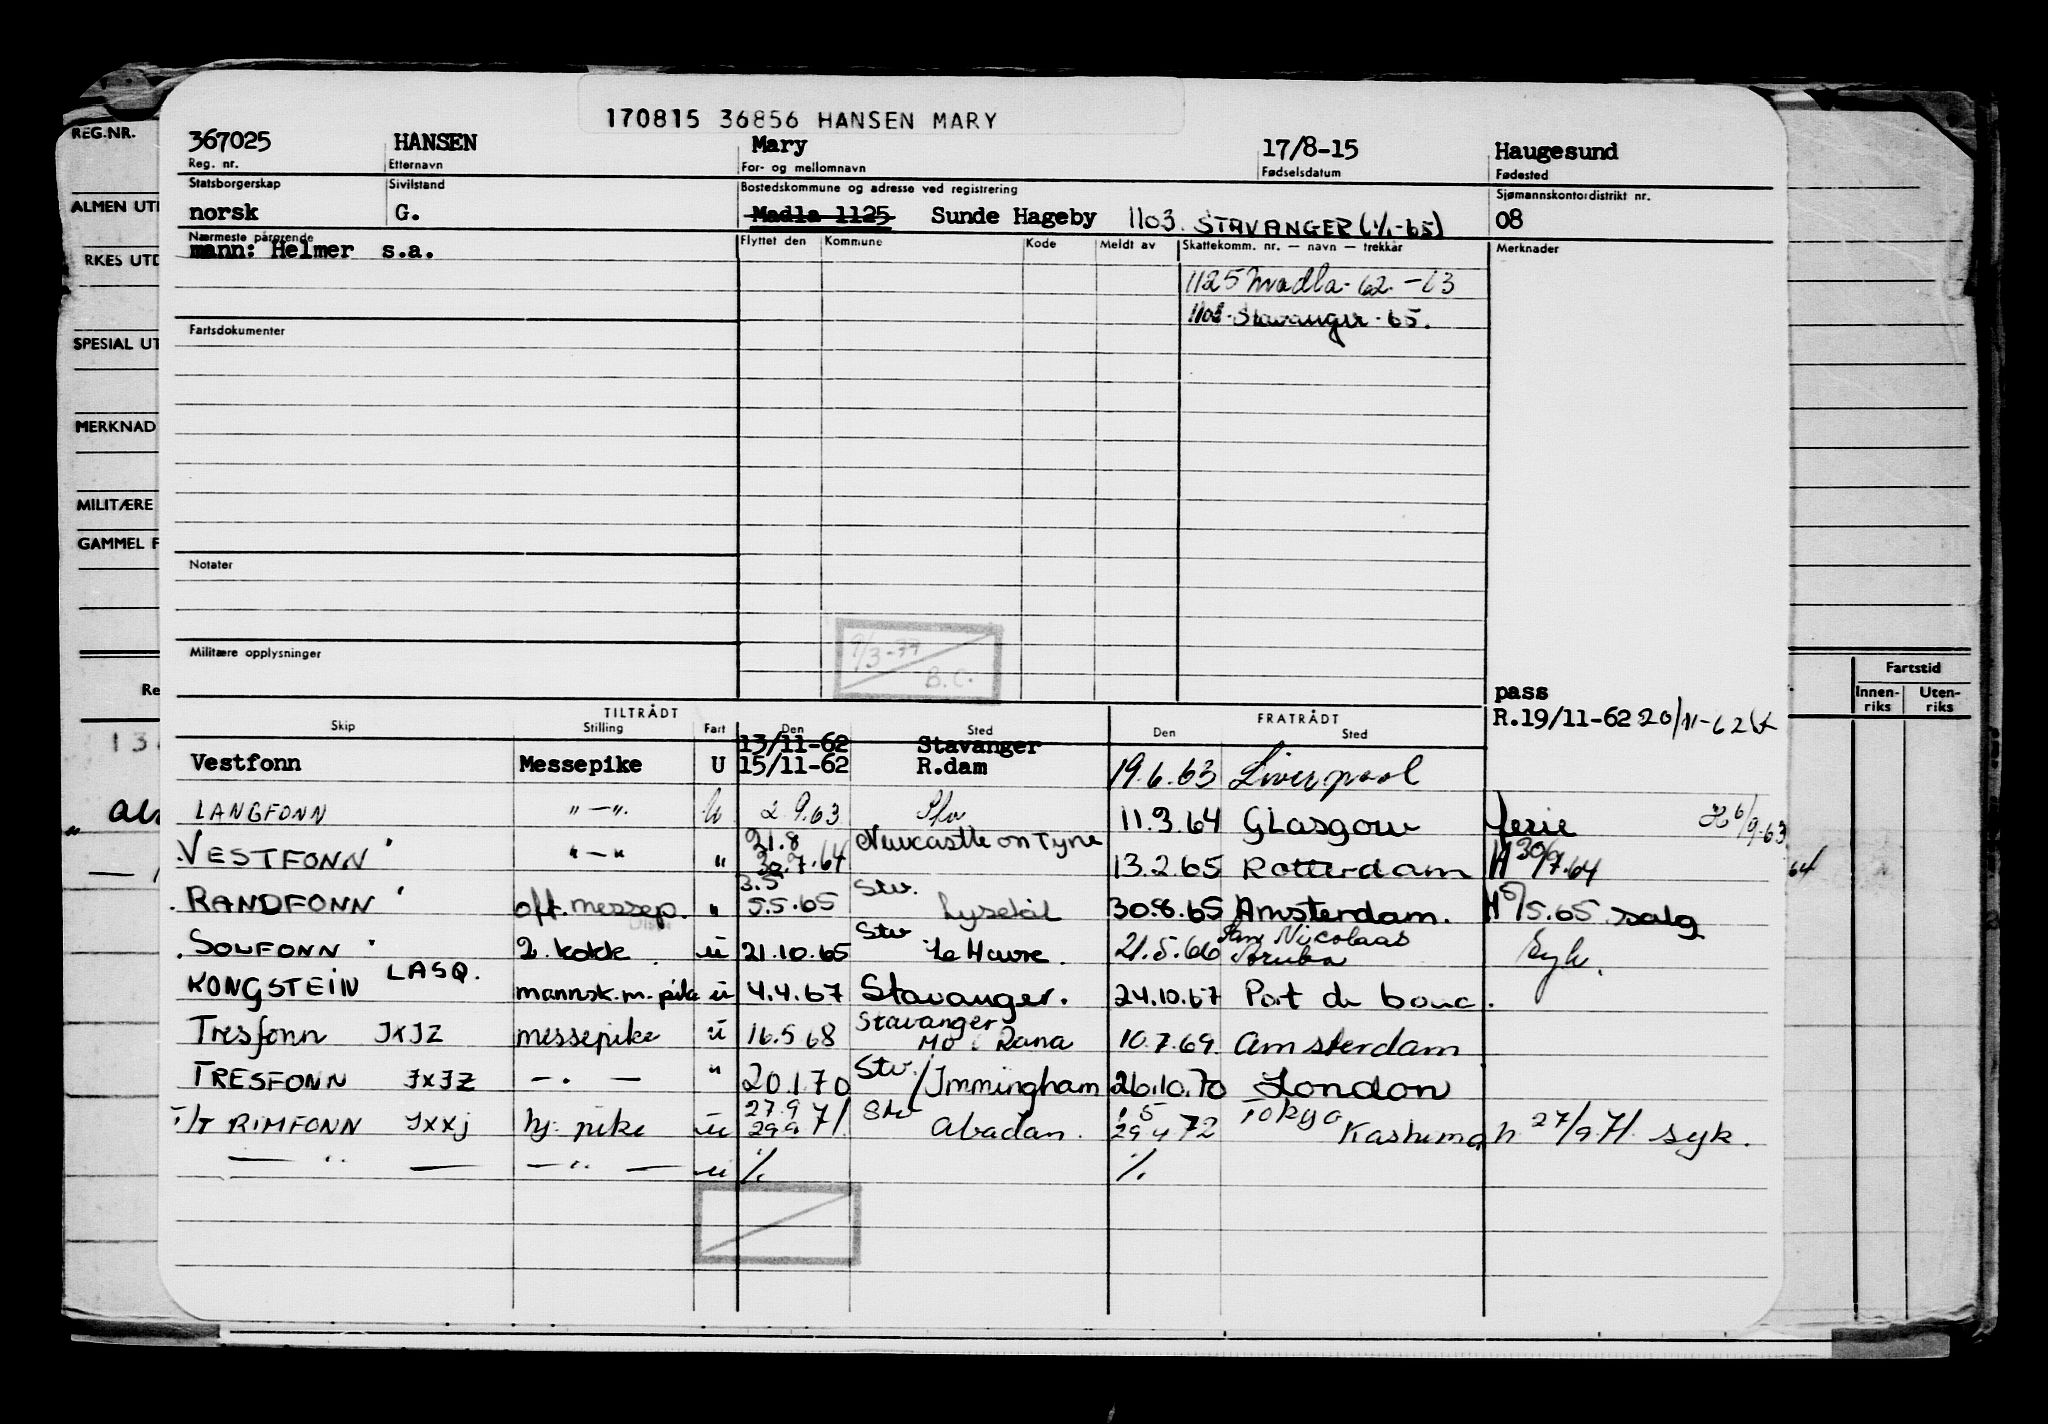 170815 36856 HANSEN MARY
367025 HANSEN Mary 17/8-15 Haugesund
Reg. nr. Etternavn For- og mellomnavn Fødselsdatum Fødested
Statsborgerskap Sivilstand Bostedskommune og adresse ved registrering Sjømannskontordistrikt nr.
norsk G. Madla 1125 Sunde Hageby 1103 STAVANGER (1/1-65) 08
Nærmeste pårørende Flyttet den Kommune Kode Meldt av Skattekomm. nr. — navn — trekkår Merknader
mann: Helmer s.a.
1125 Madla - 62 - 63
1103 - Stavanger - 65.
Fartsdokumenter
Notater
Militære opplysninger
9/3-77
B.C.
pass
R.19/11-62 20/11-62
TILTRÅDT FRATRÅDT
Skip Stilling Fart Den Sted Den Sted
13/11-62 Stavanger
Vestfonn Messepike U 15/11-62 R.dam 19.6.63 Liverpool
LANGFONN " — " U 2.9.63 Stv 11.3.64 Glasgow ferie 6/9-63
VESTFONN " — " " 21.8 30.7.64 Newcastle on Tyne 13.2.65 Rotterdam H 30/7.64
RANDFONN off. messep. " 3.5 5.5.65 Stv. Lysekil 30.8.65 Amsterdam. H 5/5.65 salg
SOLFONN 2. kokk u 21.10.65 Stv Le Havre. 21.5.66 San Nicolaas Aruba Syk.
KONGSTEIN LASQ. mannsk.m.pike u 4.4.67 Stavanger. 24.10.67 Port de bouc.
Tresfonn JXJZ messepike u 16.5 68 Stavanger Mo i Rana 10.7.69. Amsterdam
TRESFONN JXJZ — . — " 20.1.70 Stv. / Immingham 26.10.70 London
T/T RIMFONN JXXJ hj. pike u 27.9 29.9 71. Stv Abadan. 1.5 29.4 72 Tokyo Kashima h 27/9.71. syk.
— " — — " — u %. %.
REG.NR.
ALMEN UT
RKES UTD
SPESIAL UT
MERKNAD
MILITÆRE
GAMMEL F
Re
Fartstid
Innen-riks Uten-riks